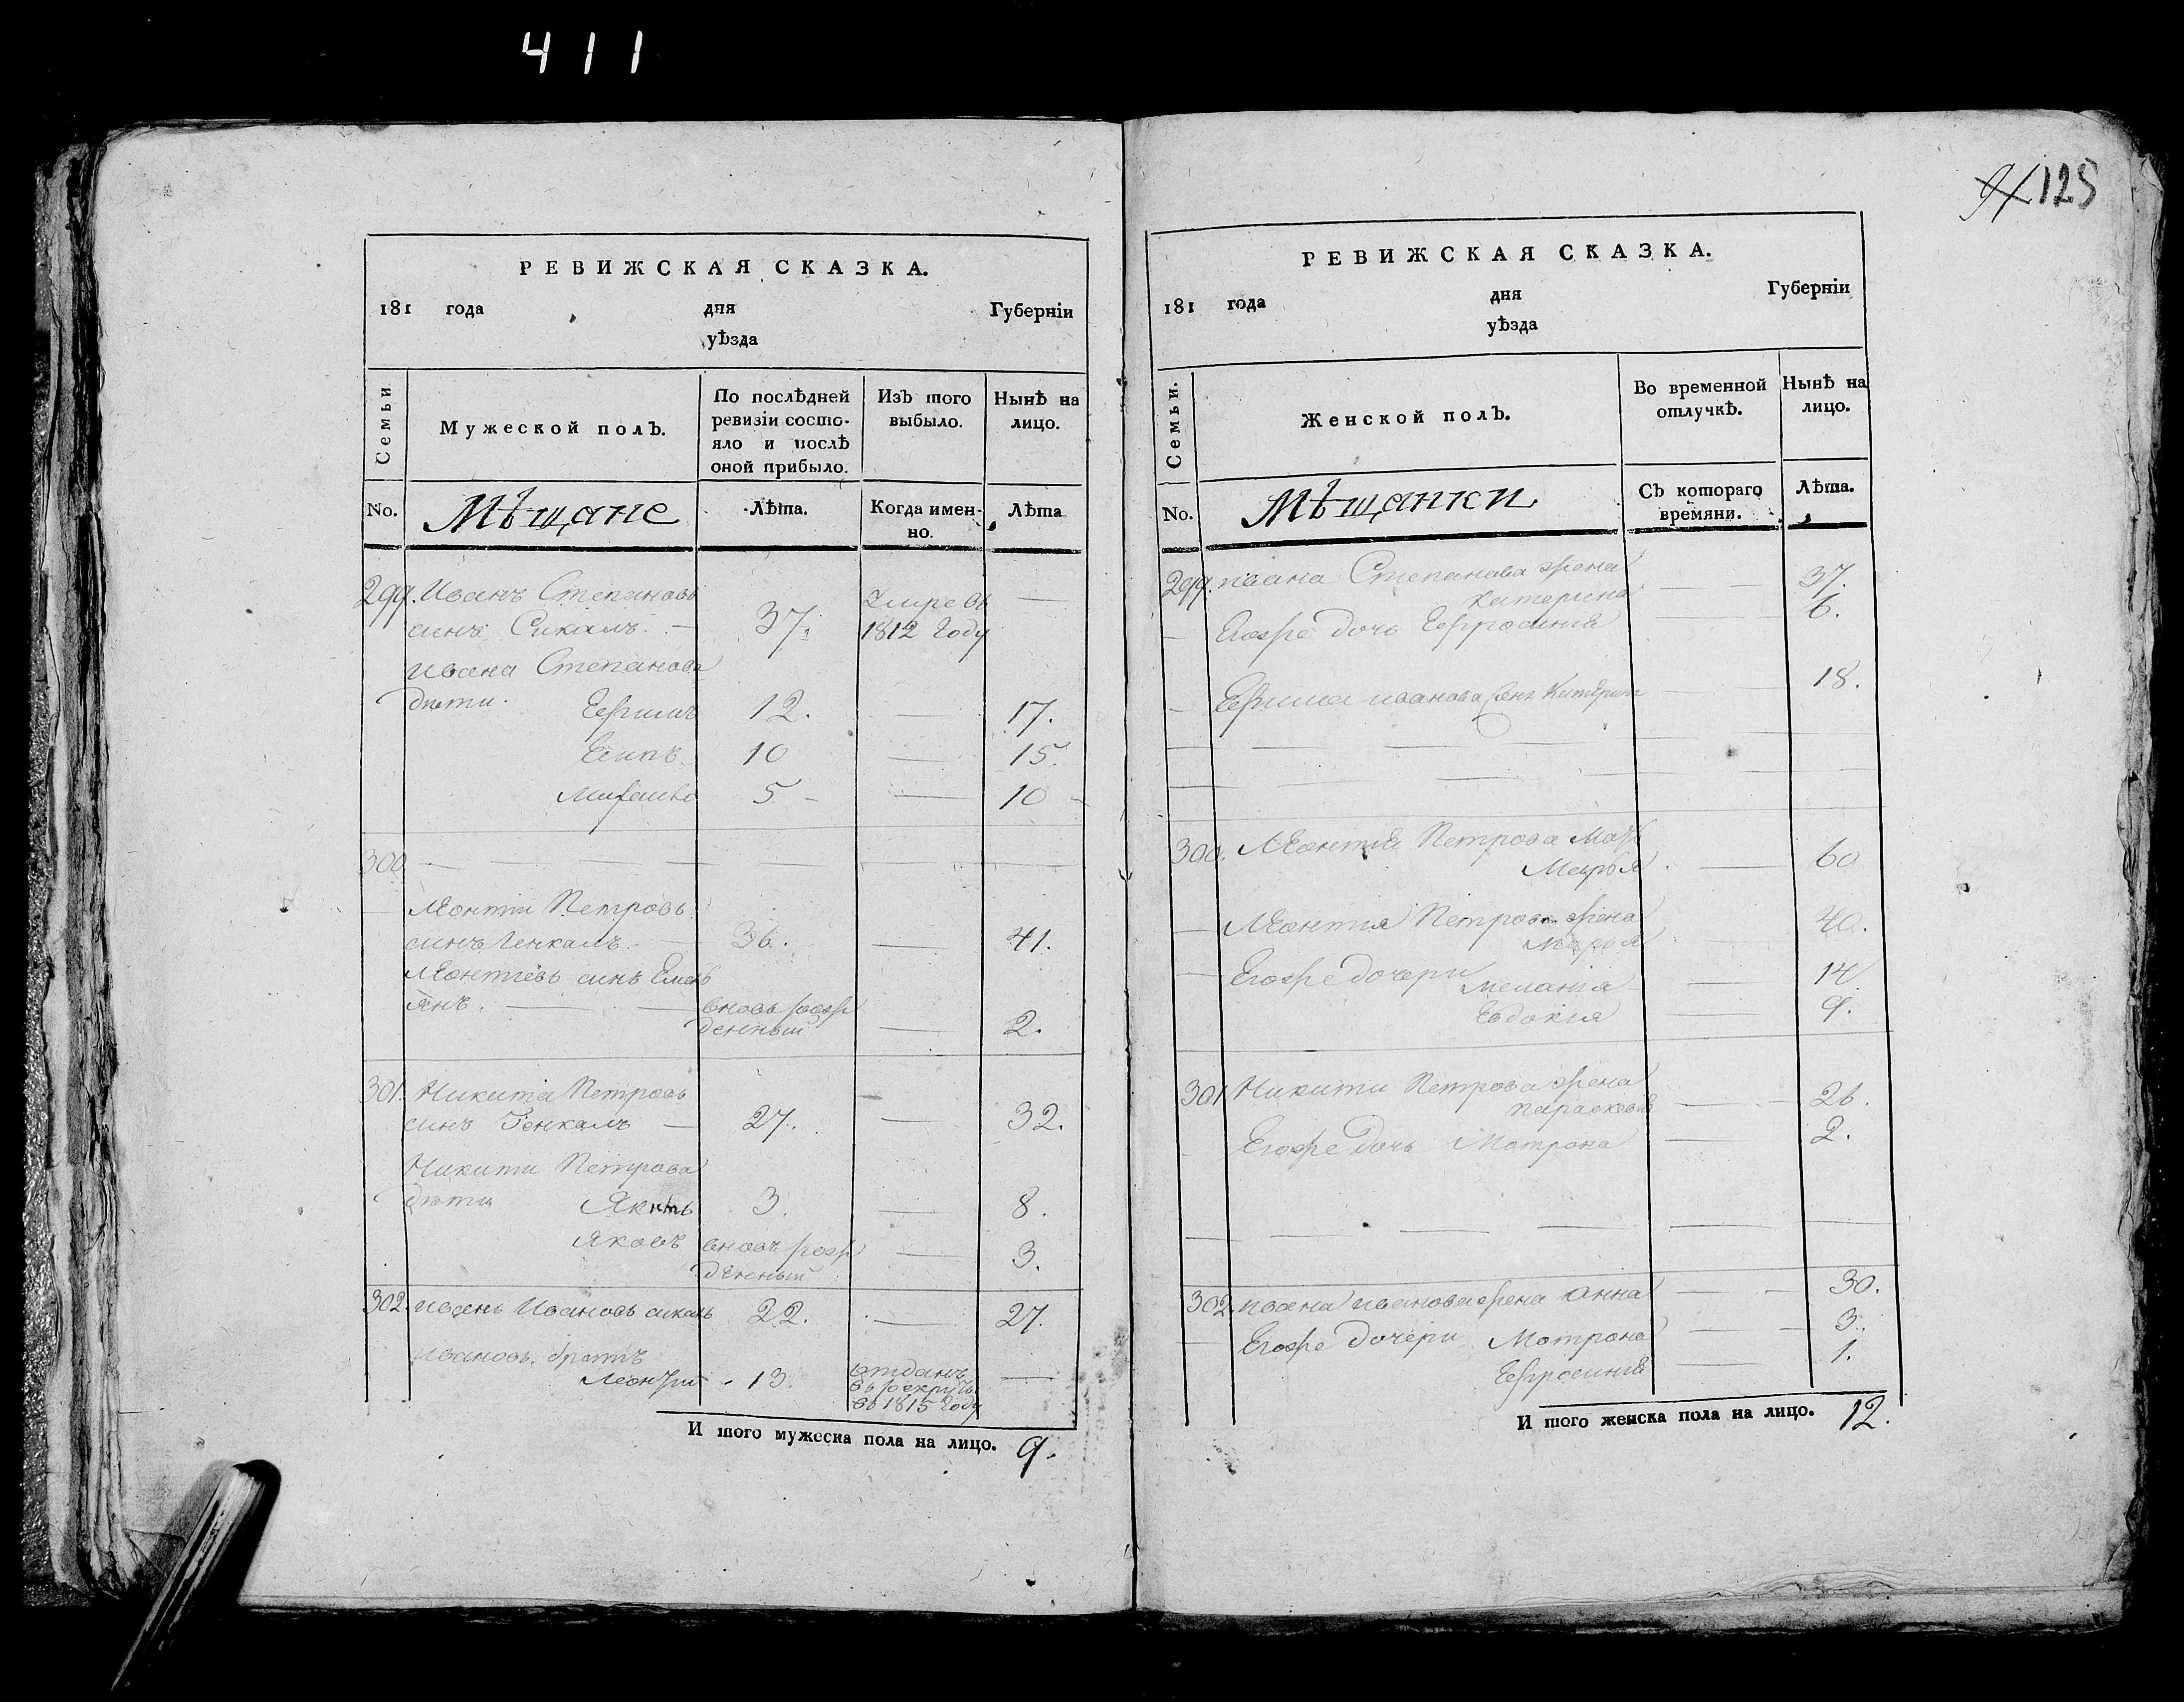 411
РЕВИЖСКАЯ СКАЗКА.
181 года дня Губерніи
уѣзда
Семьи
Мужеской полЪ.
По послѣдней
ревизіи состо-
яло и послѣ
оной прибыло.
ИзЪ того
выбыло.
Нынѣ на
лицо.
No.
Мѣщане
Лѣта.
Когда имен-
но.
Лѣта
299. Иванъ Степановъ
синъ 37. 1812 году —
Ивана Степанова
дѣти. Ефимъ 12. — 17.
Есипъ 10 — 15.
5 — 10
300 —
Леонтій Петровъ
синъ Генкалъ — 36. — 41.
Леонтіевъ синъ Емель
янъ. — вновь рож
денный — 2.
301. Никита Петровъ
синъ Генкалъ — 27. — 32.
Никити Петрова
дѣти 3. — 8.
Яковъ вновъ рож
денный — 3.
302. Иванъ Ивановъ 22. — 27.
Ивановъ братъ
Леонтій 13. отданъ —
въ рекруты
въ 1815 году
И того мужеска пола на лицо. 9.
125
РЕВИЖСКАЯ СКАЗКА.
181 года дня Губерніи
уѣзда
Семьи.
Женской полЪ.
Во временной
отлучкѣ.
Нынѣ на
лицо.
No.
Мѣщанки
СЪ котораго
времяни.
Лѣта.
299. Ивана Степанова жена
Катерина — 37.
Егоже дочь Ефросинія — 6.
Ефима Иванова жена Катерина — 18.
300. Леонтія Петрова мать
Марья — 60
Леонтія Петрова жена
Марья 40.
Егоже дочери Меланія — 14
Евдокія — 9.
301 Никити Петрова жена
Параскевія — 26.
Егоже дочь Мотрона — 2.
302. Ивана Иванова жена Анна — 30.
Егоже дочери Мотрона — 3.
Ефросинія — 1.
И того женска пола на лицо. 12.